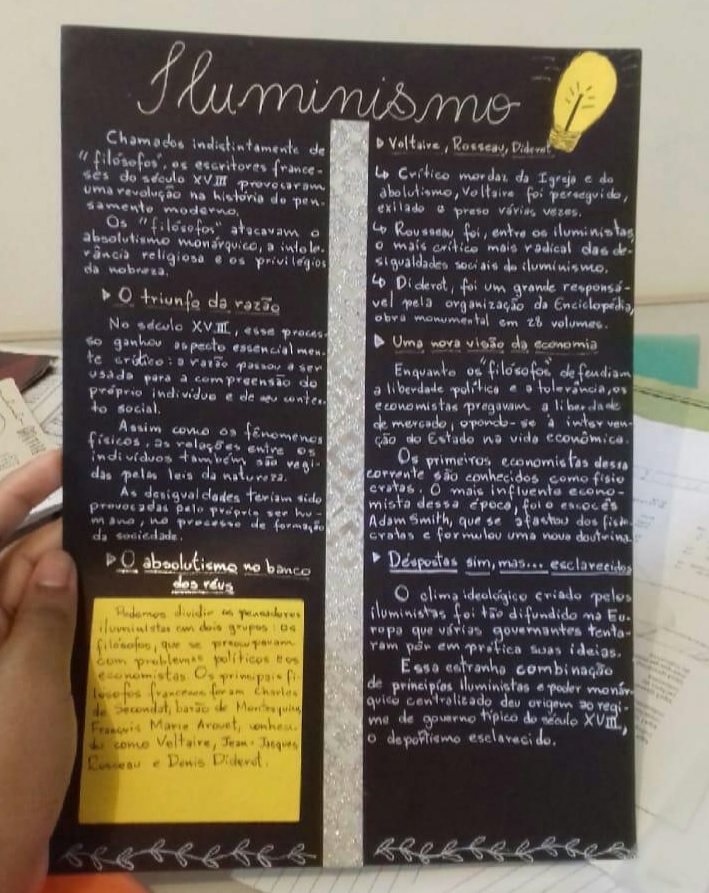 Iluminismo
Chamados indistintamente de
"filósofos", os escritores france-
ses do século XVIII provocaram
uma revolução na história do pen-
samento moderno.
Os "filósofos" atacavam o
absolutismo monárquico, a intole-
rância religiosa e os privilégios
da nobreza.
▸ O triunfo da razão
No século XVIII, esse proces-
so ganhou aspecto essencialmen-
te crítico: a razão passou a ser
usada para a compreensão do
próprio indivíduo e de seu contex-
to social.
Assim como os fenomenos
físicos, as relações entre os
indivíduos também são regi-
das pelas leis da natureza.
As desigualdades teriam sido
provocadas pelo próprio ser hu-
mano, no processo de formação
da sociedade.
▸ O absolutismo no banco
dos réus
Podemos dividir os pensadores
iluministas em dois grupos: os
filósofos, que se preocupavam
com problemas políticos e os
economistas Os principais fi-
lósofos franceses foram Charles
de Secondat, barão de Montesquieu,
François Marie Arouet, conheci-
do como Voltaire, Jean-Jacques
Rosseau e Denis Diderot.
▸ Voltaire, Rosseau, Diderot
↳ Crítico mordaz da Igreja e do
abolutismo, Voltaire foi perseguido,
exilado e preso várias vezes.
↳ Rousseau foi, entre os iluministas,
o mais crítico mais radical das de-
sigualdades sociais do iluminismo.
↳ Diderot, foi um grande responsá-
vel pela organização da Enciclopédia,
obra monumental em 28 volumes.
▸ Uma nova visão da economia
Enquanto os "filósofos" defendiam
a liberdade política e a tolerância, os
economistas pregavam a liberdade
de mercado, opondo-se à interven-
ção do Estado na vida econômica.
Os primeiros economistas dessa
corrente são conhecidos como fisio
cratas. O mais influente econo-
mista dessa época, foi o escocês
Adam Smith, que se afastou dos fisio
cratas e formulou uma nova doutrina.
▸ Déspostas sim, mas... esclarecidos
O clima ideológico criado pelos
iluministas foi tão difundido na Eu-
ropa que várias governantes tenta-
ram pôr em prática suas ideias.
Essa estranha combinação
de princípios Iluministas e poder monár-
quico centralizado deu origem ao regi-
me de governo típico do século XVIII,
o despotismo esclarecido.